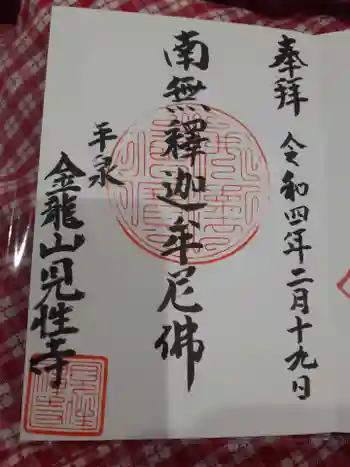 奉拝
令和四年二月十九日
南無釋迦牟尼佛
平泉
金龍山見性寺